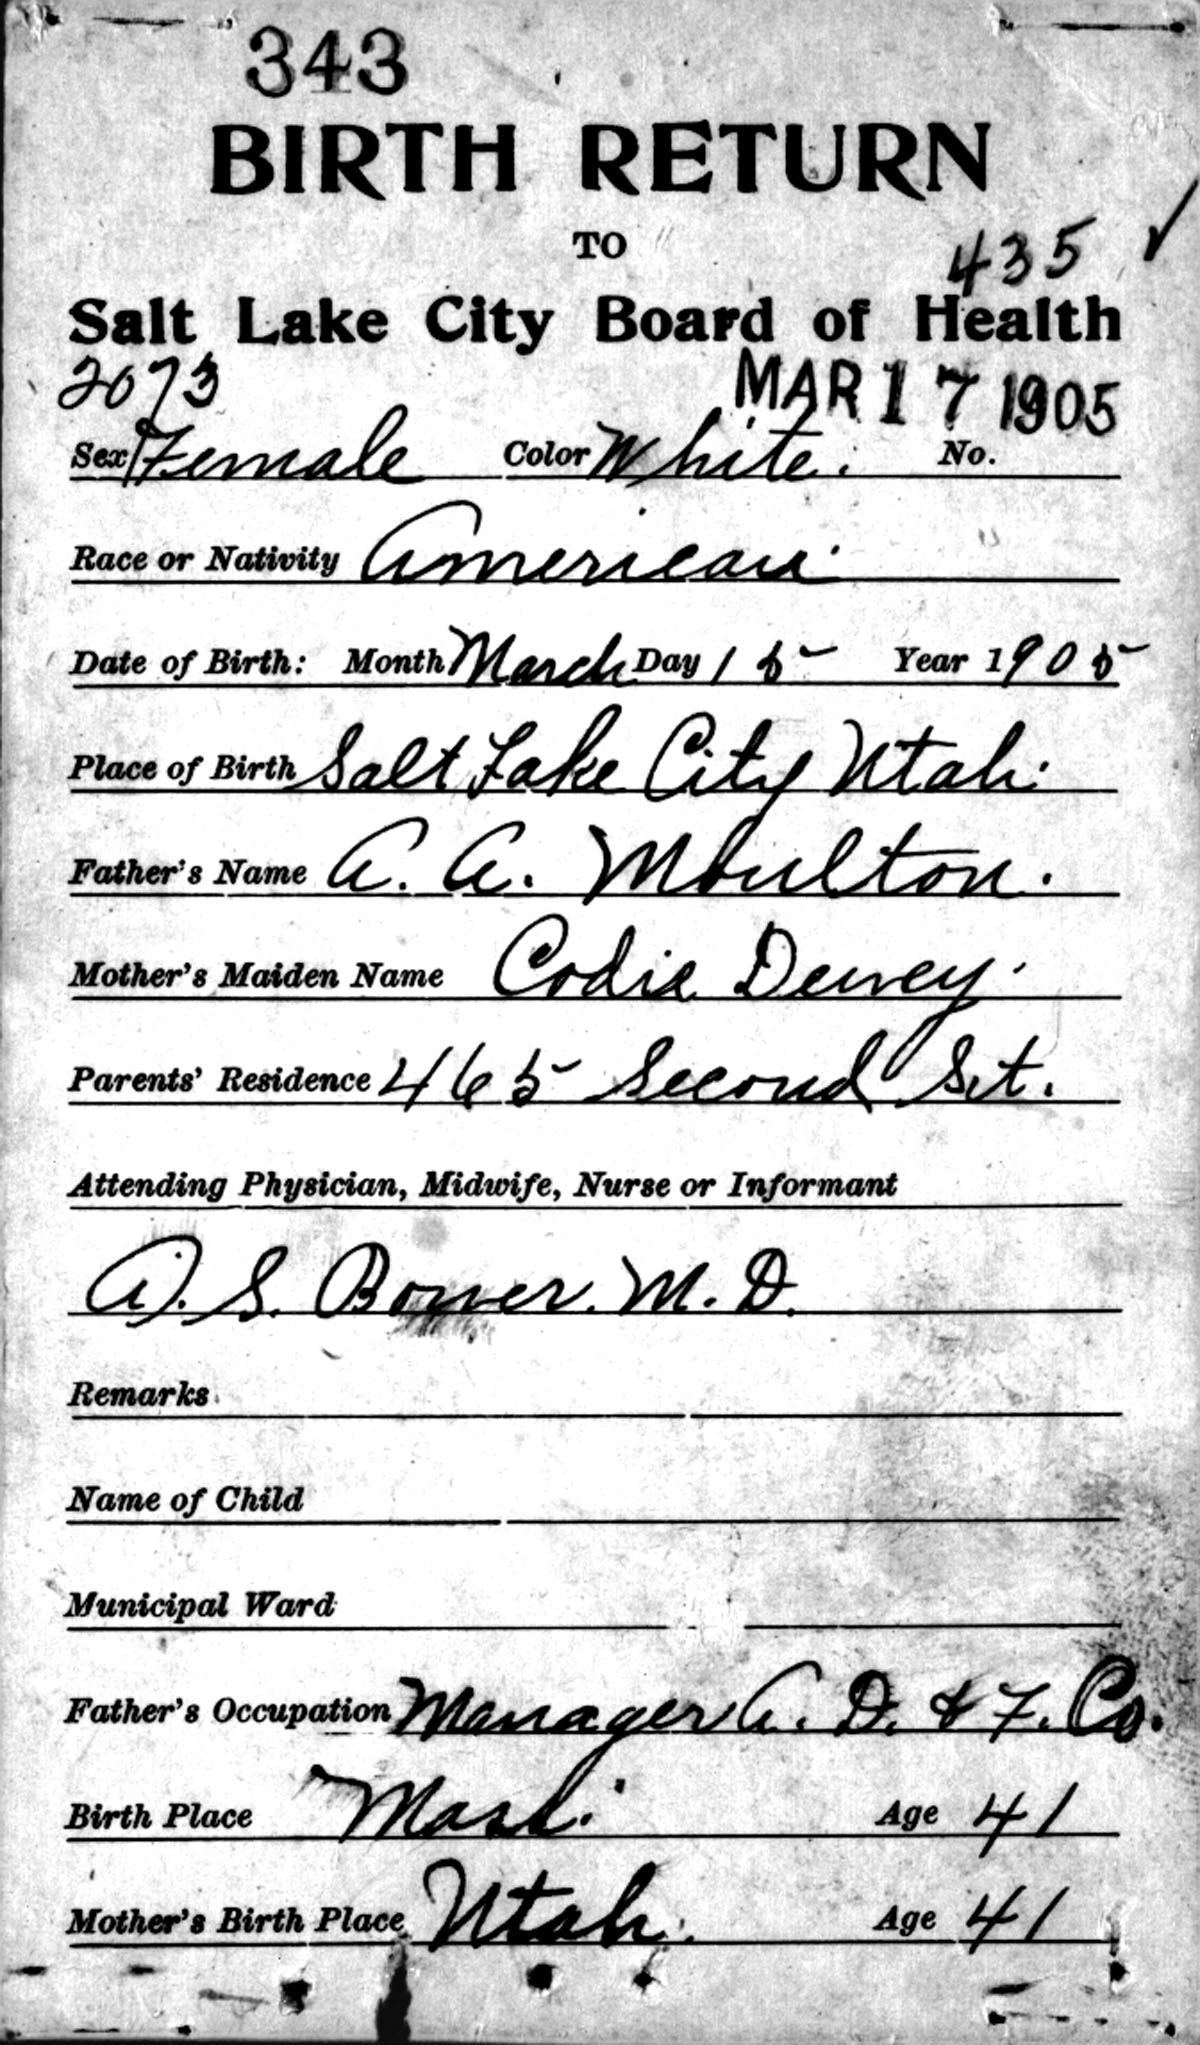 343
BIRTH RETURN
TO
435 ✓
Salt Lake City Board of Health
2073 MAR 17 1905
Sex Female Color White. No.
Race or Nativity American
Date of Birth: Month March Day 15 Year 1905
Place of Birth Salt Lake City Utah.
Father's Name A. A. Moulton.
Mother's Maiden Name Codie Dewey.
Parents' Residence 465 Second St.
Attending Physician, Midwife, Nurse or Informant
A. S. Bower. M. D.
Remarks
Name of Child
Municipal Ward
Father's Occupation Manager A. D. & F. Co.
Birth Place Mass. Age 41
Mother's Birth Place Utah. Age 41